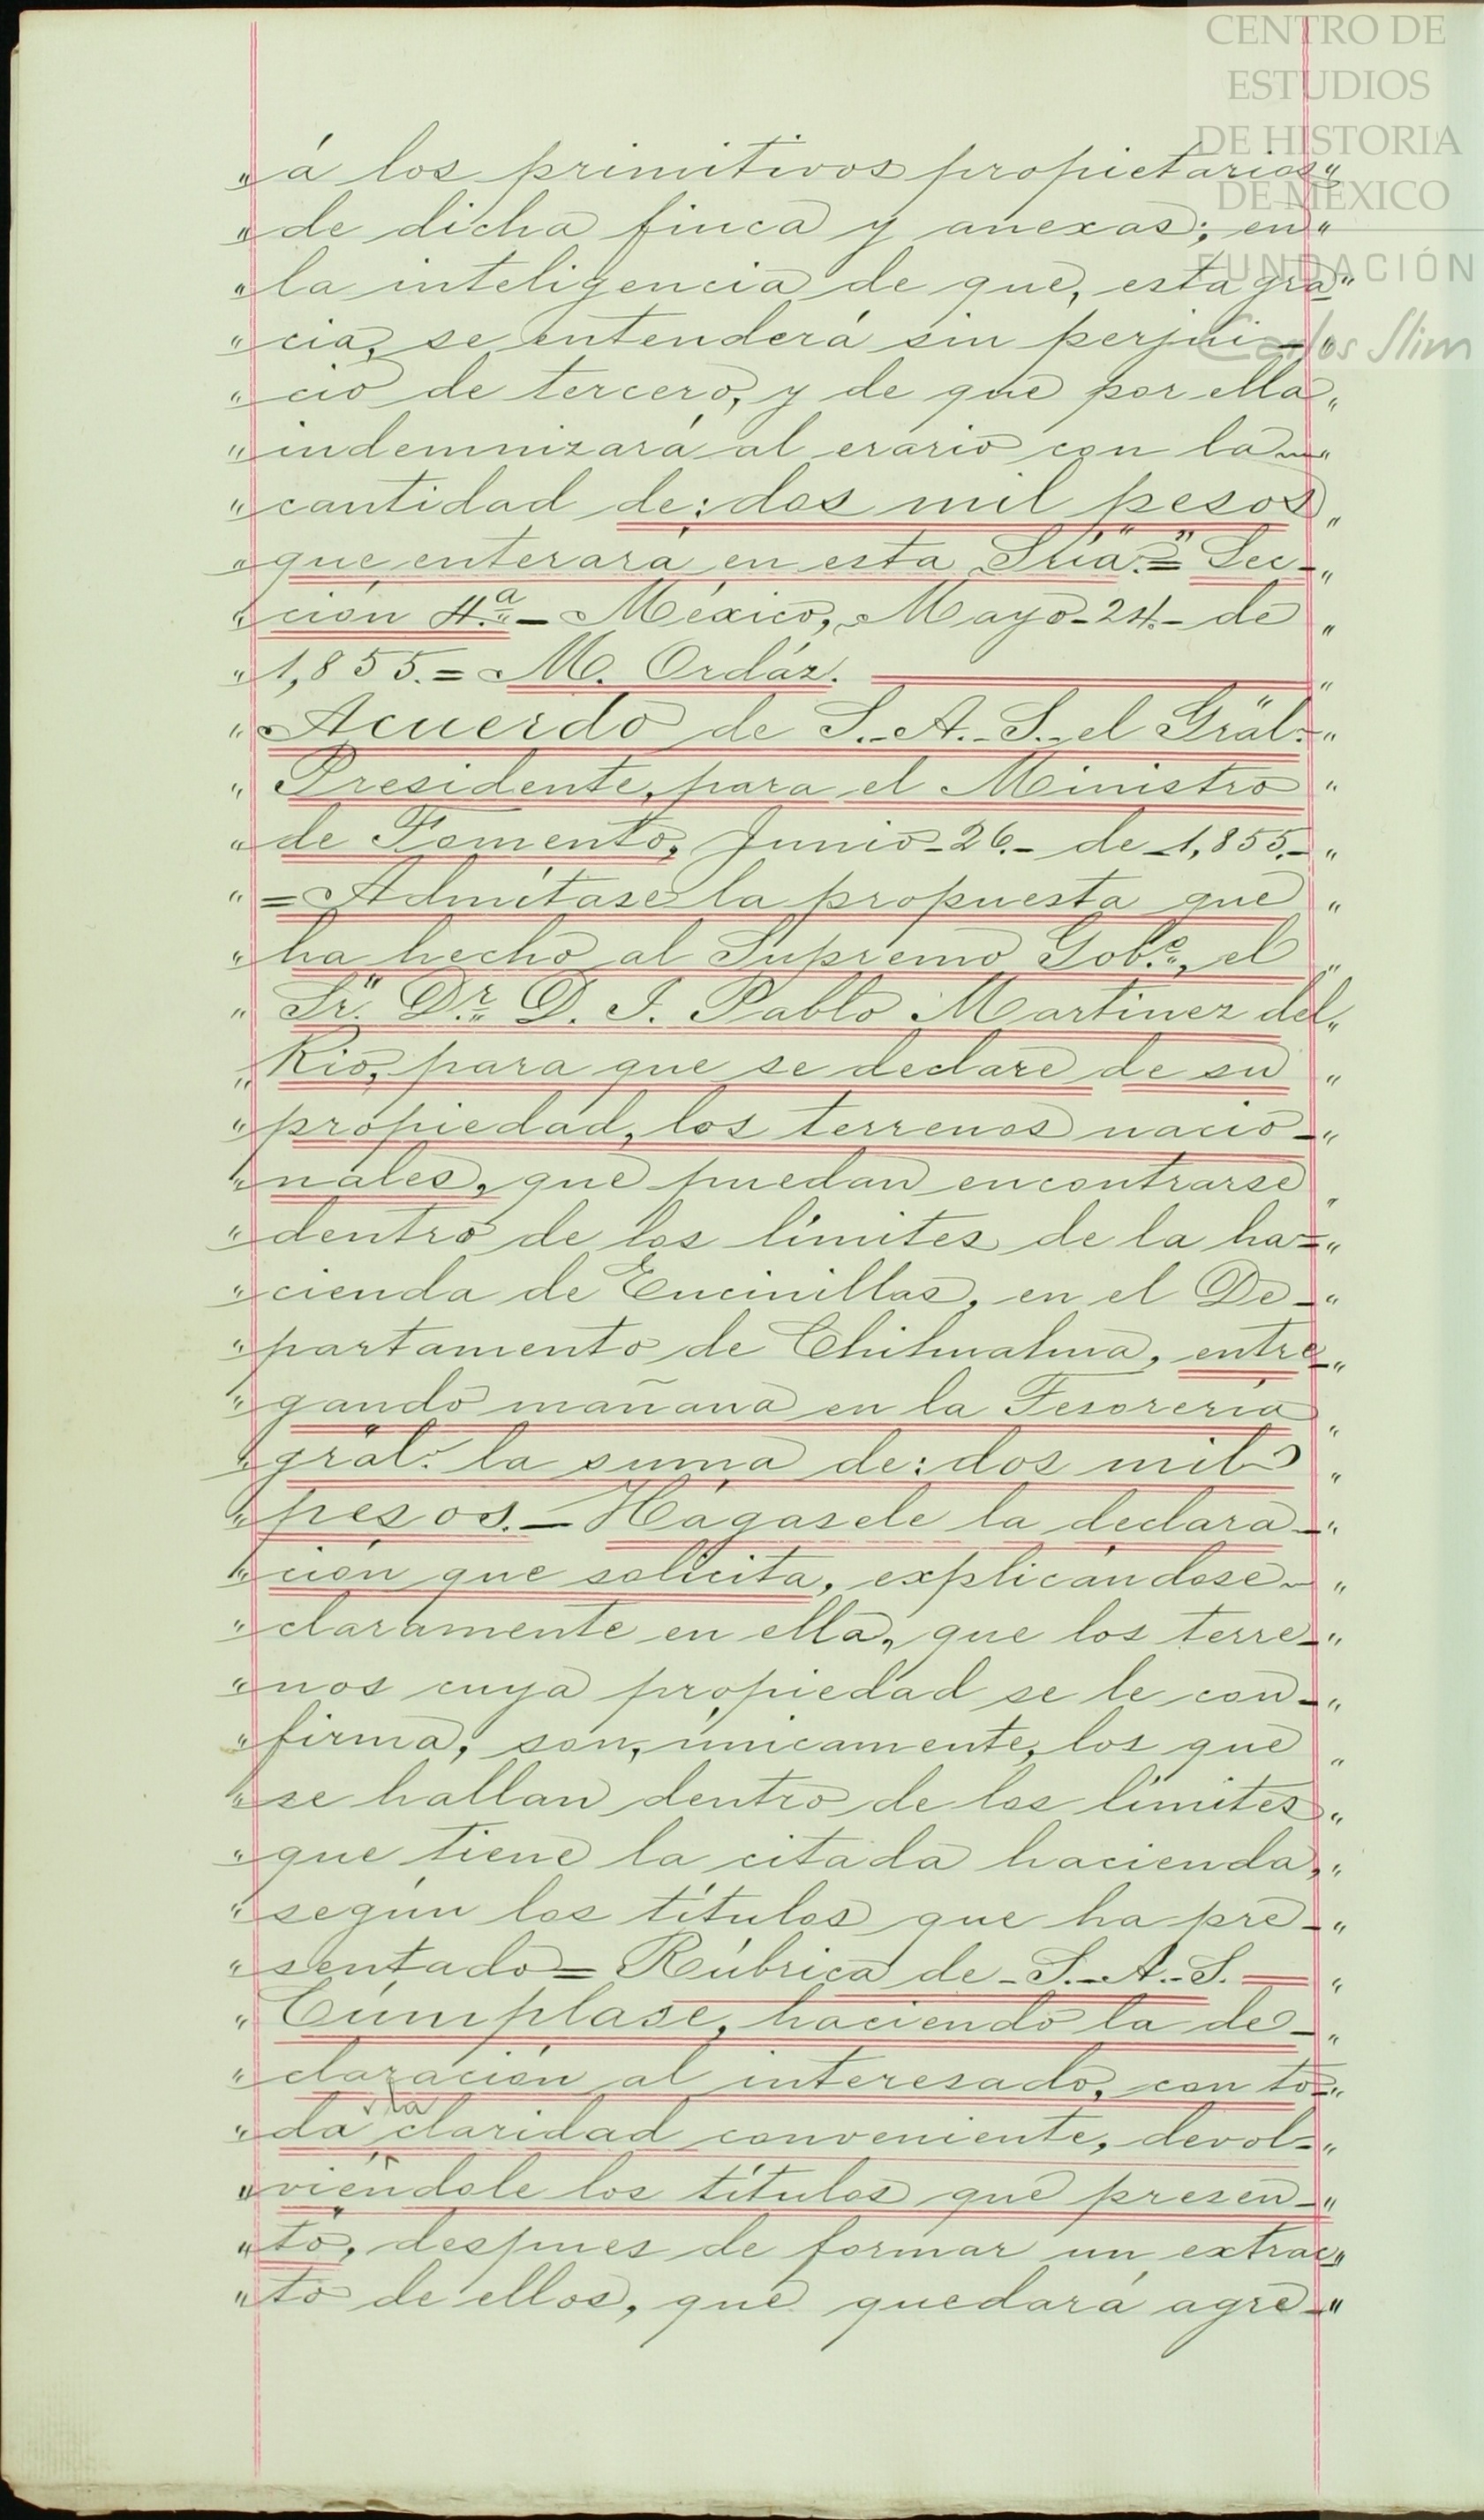 CENTRO DE
ESTUDIOS
DE HISTORIA
DE MÉXICO
FUNDACIÓN
Carlos Slim
„ á los primitivos propietarios "
„ de dicha finca y anexas; en "
„ la inteligencia de que, esta gra "
„ cia, se entenderá sin perjui- "
„ cio de tercero, y de que por ella „
„ indemnizará al erario con la "
„ cantidad de: dos mil pesos „
„ que enterará en esta Sría.= Sec- „
„ ción 4.ª - México, Mayo-24.- de „
„ 1,855.= M. Ordáz. "
„ Acuerdo de S.-A.-S. el Gräl.- „
„ Presidente, para el Ministro "
„ de Fomento, Junio-26.- de-1,855.- „
" = Admítase la propuesta que „
„ ha hecho al Supremo Gob.º, el „
„ Sr. Dr. D. J. Pablo Martinez del „
„ Rio, para que se declare de su „
„ propiedad, los terrenos nacio- „
„ nales, que puedan encontrarse „
„ dentro de los límites de la ha= „
„ cienda de Encinillas, en el De- „
„ partamento de Chihuahua, entre- „
„ gando mañana en la Tesorería „
„ gräl. la suma de: dos mil „
„ pesos. - Hágasele la declara- „
„ ción que solicita, explicándose „
„ claramente en ella, que los terre- „
„ nos cuya propiedad se le con- „
„ firma, son, únicamente, los que „
„ se hallan dentro de los límites „
„ que tiene la citada hacienda, „
„ según los títulos que ha pre- „
„ sentado= Rúbrica de-S.-A.-S. = „
„ Cúmplase, haciendo la de- „
„ claración al interesado, con to- „
„ da la claridad conveniente, devol= „
„ viéndole los títulos que presen- „
„ tó, despues de formar un extrac- „
„ to de ellos, que quedará agre- "